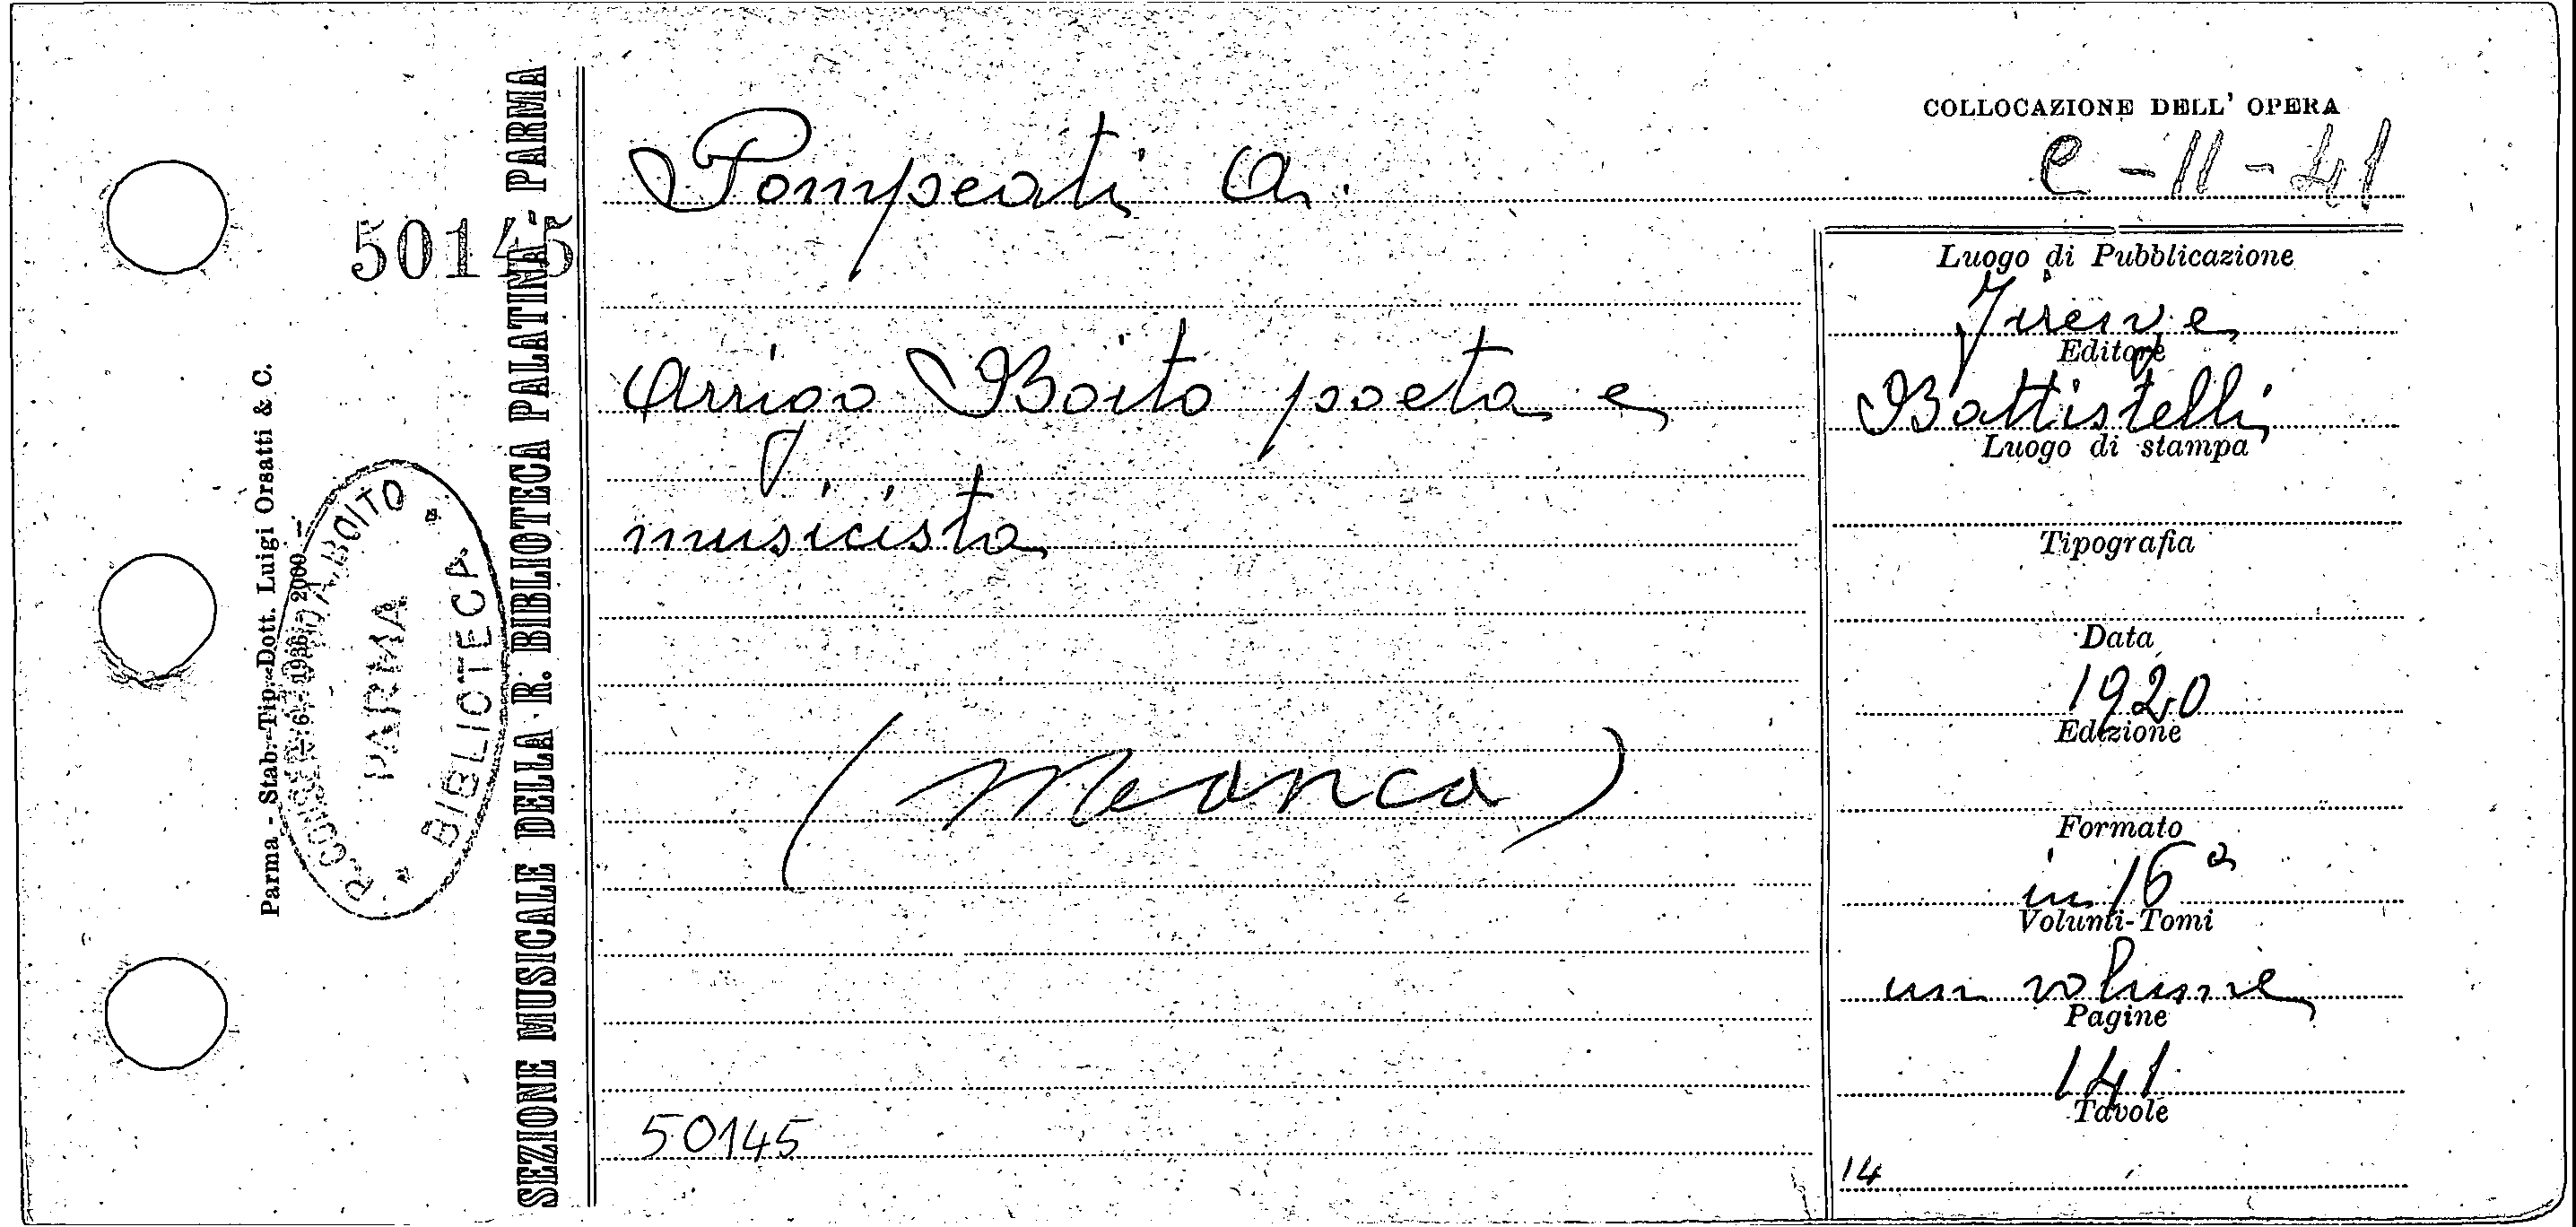 50145
Parma - Stab. Tip. Dott. Luigi Orsati & C.
6 - 1936 - 2000
R. CONSERV. A. BOITO
PARMA
* BIBLIOTECA *
SEZIONE MUSICALE DELLA R. BIBLIOTECA PALATINA - PARMA
Pompeati A.
Arrigo Boito poeta e
musicista
(Manca)
50145
COLLOCAZIONE DELL' OPERA
C - 11 - 41
Luogo di Pubblicazione
Firenze
Editore
Battistelli
Luogo di stampa
Tipografia
Data
1920
Edizione
Formato
in 16°
Volumi-Tomi
un volume
Pagine
141
Tavole
14